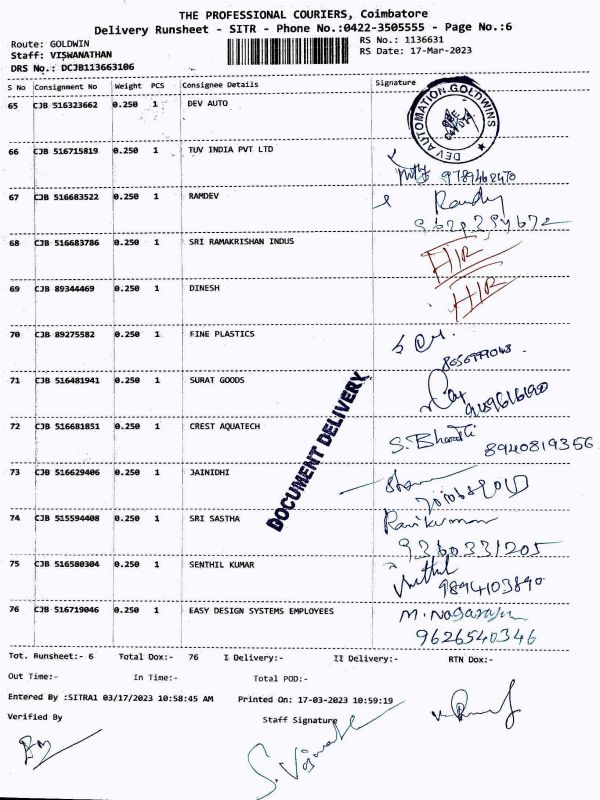 THE PROFESSIONAL COURIERS, Coimbatore
Delivery Runsheet - SITR - Phone No.:0422-3505555 - Page No.:6
Route: GOLDWIN
RS No.: 1136631
Staff: VISWANATHAN
RS Date: 17-Mar-2023
DRS No.: DCJB113663106
S No Consignment No Weight PCS Consignee Details Signature
65 CJB 516323662 0.250 1 DEV AUTO
DEV AUTOMATION GOLDWINS
66 CJB 516715819 0.250 1 TUV INDIA PVT LTD
9789462470
67 CJB 516683522 0.250 1 RAMDEV
68 CJB 516683786 0.250 1 SRI RAMAKRISHAN INDUS
69 CJB 89344469 0.250 1 DINESH
70 CJB 89275582 0.250 1 FINE PLASTICS
71 CJB 516481941 0.250 1 SURAT GOODS
72 CJB 516681851 0.250 1 CREST AQUATECH S. Bharathi
8940819356
73 CJB 516629406 0.250 1 JAINIDHI
74 CJB 515594408 0.250 1 SRI SASTHA Ravikumar
9360331205
75 CJB 516580304 0.250 1 SENTHIL KUMAR
9894103890
76 CJB 516719046 0.250 1 EASY DESIGN SYSTEMS EMPLOYEES M. Nagaraju
9626540346
DOCUMENT DELIVERY
Tot. Runsheet:- 6 Total Dox:- 76 I Delivery:- II Delivery:- RTN Dox:-
Out Time:- In Time:- Total POD:-
Entered By :SITRA1 03/17/2023 10:58:45 AM Printed On: 17-03-2023 10:59:19
Verified By Staff Signature